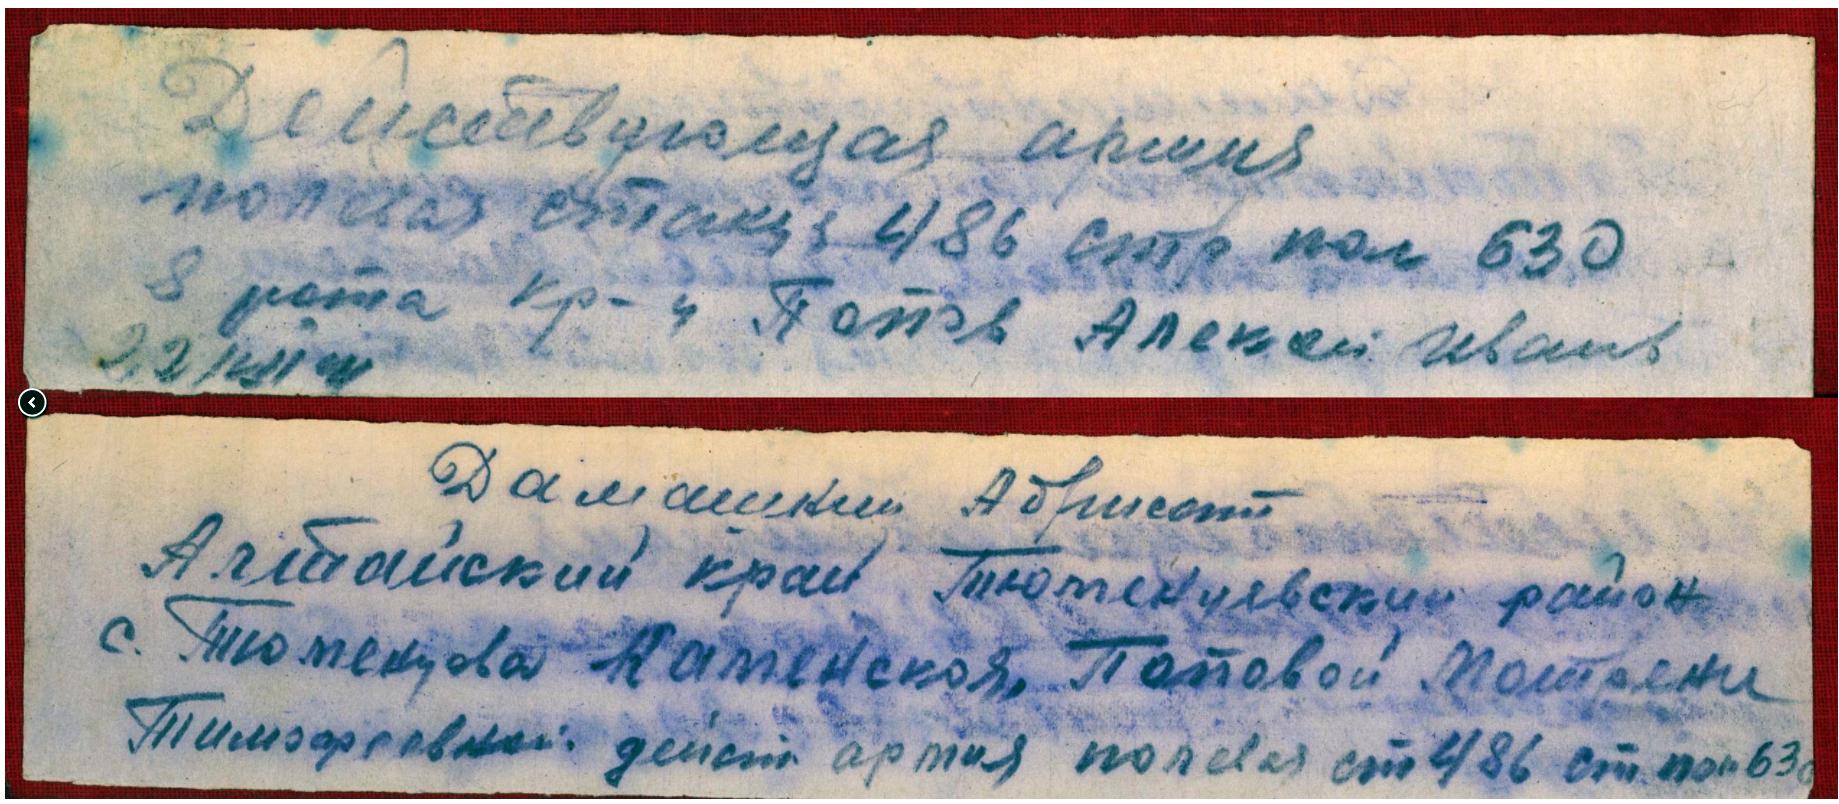 Действующая армия
полевая станция 486 стр пол 630
8 рота кр-ц Попов Алексей Иванв
Дамашний Адрисат
Алтайский край Тюменцевский район
с. Тюменцова Каменская, Поповой Мотрени
Тимофеевной. дейст армия полевая ст 486 ст пол 630